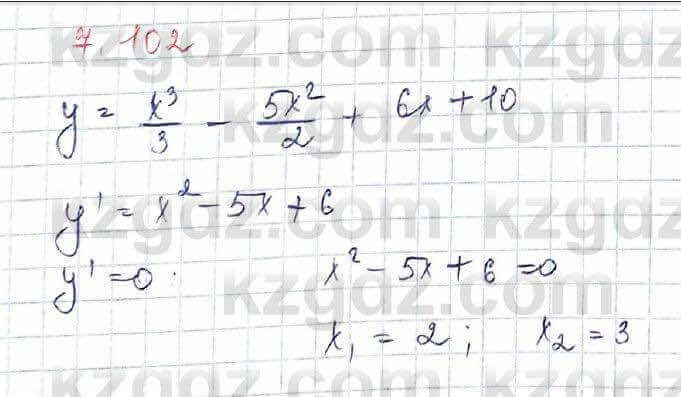 7.102
y = x³/3 - 5x²/2 + 6x + 10
y' = x² - 5x + 6
y' = 0. x² - 5x + 6 = 0
x₁ = 2; x₂ = 3
kzgdz.com
kzgdz.com
kzgdz.com
kzgdz.com
kzgdz.com